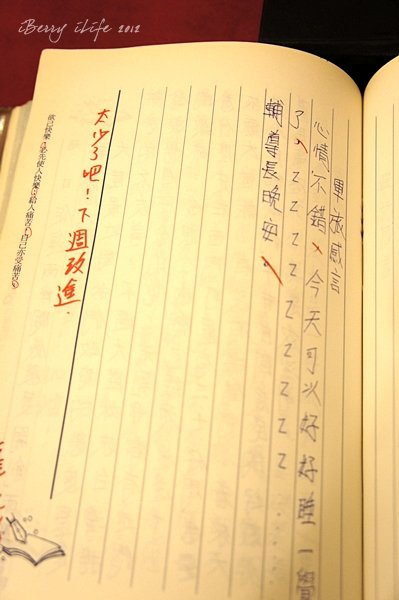 iBerry iLife 2012
軍旅感言
心情不錯，今天可以好好睡一覺
了，ZZZZZZZZZZZ......
輔導長晚安，
太少了吧！下週改進.
欲己快樂，必先使人快樂；給人痛苦，自己亦受痛苦。